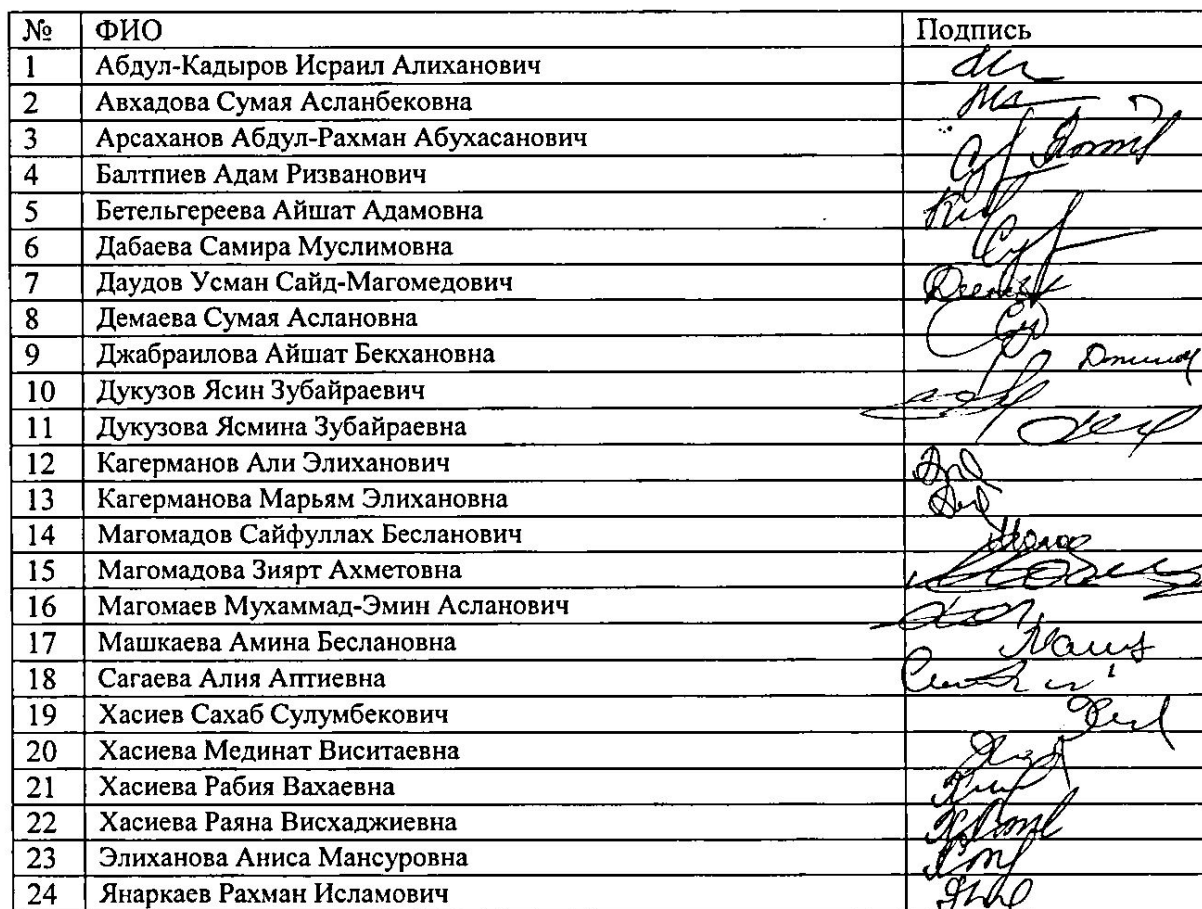 № ФИО Подпись
1 Абдул-Кадыров Исраил Алиханович
2 Авхадова Сумая Асланбековна
3 Арсаханов Абдул-Рахман Абухасанович
4 Балтпиев Адам Ризванович
5 Бетельгереева Айшат Адамовна
6 Дабаева Самира Муслимовна
7 Даудов Усман Сайд-Магомедович
8 Демаева Сумая Аслановна
9 Джабраилова Айшат Бекхановна
10 Дукузов Ясин Зубайраевич
11 Дукузова Ясмина Зубайраевна
12 Кагерманов Али Элиханович
13 Кагерманова Марьям Элихановна
14 Магомадов Сайфуллах Бесланович
15 Магомадова Зиярт Ахметовна
16 Магомаев Мухаммад-Эмин Асланович
17 Машкаева Амина Беслановна
18 Сагаева Алия Аптиевна
19 Хасиев Сахаб Сулумбекович
20 Хасиева Мединат Виситаевна
21 Хасиева Рабия Вахаевна
22 Хасиева Раяна Висхаджиевна
23 Элиханова Аниса Мансуровна
24 Янаркаев Рахман Исламович